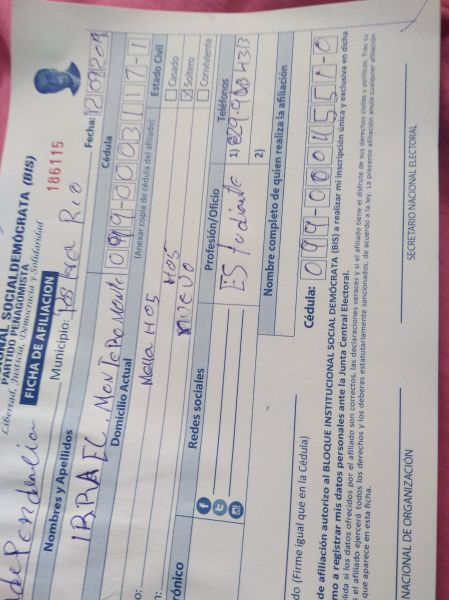 IONAL SOCIALDEMÓCRATA (BIS)
PARTIDO PEÑAGOMISTA
Libertad, Justicia, Democracia y Solidaridad
FICHA DE AFILIACION
186115
Municipio: Postrer Rio
Fecha:
Nombres y Apellidos
Cédula
ISRRAEL. MONTERO MONTE
099-0003117-1
Domicilio Actual
(Anexar copia de cédula del afiliado)
Estado Civil
Casado
Soltero
Conviviente
nuevo
rónico
Redes sociales
Profesión/Oficio
Teléfonos
EStudiante
1)
2)
Nombre completo de quien realiza la afiliación
do (Firme igual que en la Cédula)
Cédula: 099-0004551-0
de afiliación autorizo al BLOQUE INSTITUCIONAL SOCIAL DEMÓCRATA (BIS) a realizar mi inscripción única y exclusiva en dicha
mo a registrar mis datos personales ante la Junta Central Electoral.
lida si los datos ofrecidos por el afiliado son correctos, las declaraciones veraces y si el afiliado tiene el disfrute de sus derechos civiles y políticos. Tras su
el afiliado ejercerá todos los derechos y los deberes estatutariamente sancionados, de acuerdo a la ley. La presente afiliación anula cualquier afiliación
que aparece en esta ficha.
NACIONAL DE ORGANIZACIÓN
SECRETARIO NACIONAL ELECTORAL